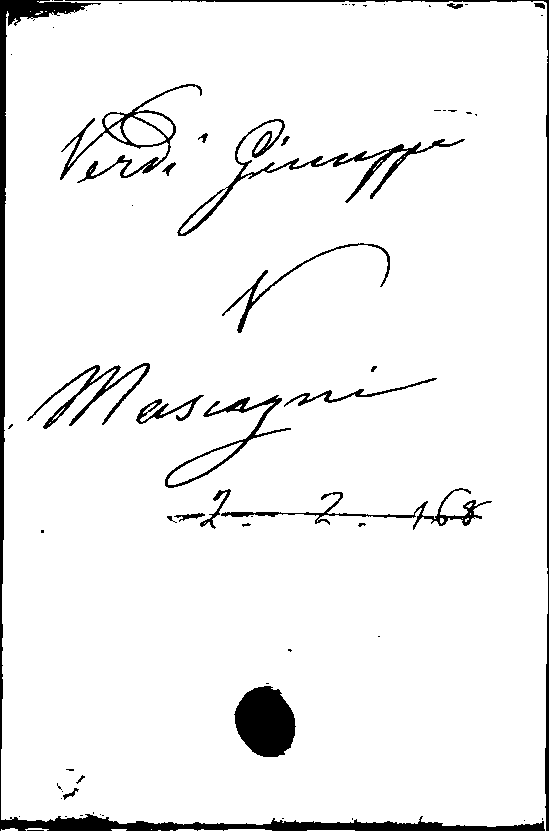 Verdi Giuseppe
V
Mascagni
2. 2. 168